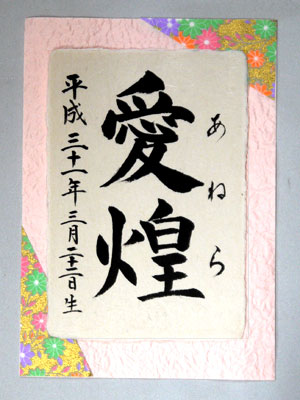 あねら
愛煌
平成三十一年三月二十二日生